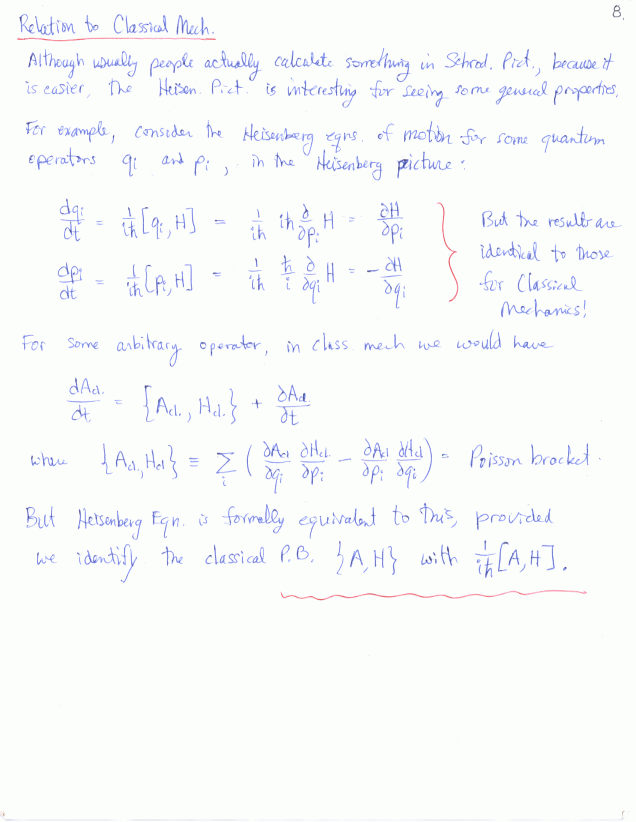 8.
Relation to Classical Mech.
Although usually people actually calculate something in Schrod. Pict., because it
is easier, the Heisen. Pict. is interesting for seeing some general properties.
For example, consider the Heisenberg Eqns. of motion for some quantum
operators qᵢ and pᵢ, in the Heisenberg picture:
dqᵢ/dt = 1/iħ [qᵢ, H] = 1/iħ iħ ∂/∂pᵢ H = ∂H/∂pᵢ
dpᵢ/dt = 1/iħ [pᵢ, H] = 1/iħ ħ/i ∂/∂qᵢ H = -∂H/∂qᵢ
But the results are
identical to those
for Classical
Mechanics!
For some arbitrary operator, in class. mech we would have
dA_cl./dt = {A_cl., H_cl.} + ∂A_cl./∂t
where {A_cl., H_cl} ≡ Σᵢ (∂A_cl/∂qᵢ ∂H_cl./∂pᵢ - ∂A_cl/∂pᵢ ∂H_cl/∂qᵢ) = Poisson bracket.
But Heisenberg Eqn. is formally equivalent to this, provided
we identify the classical P.B. {A, H} with 1/iħ [A, H].